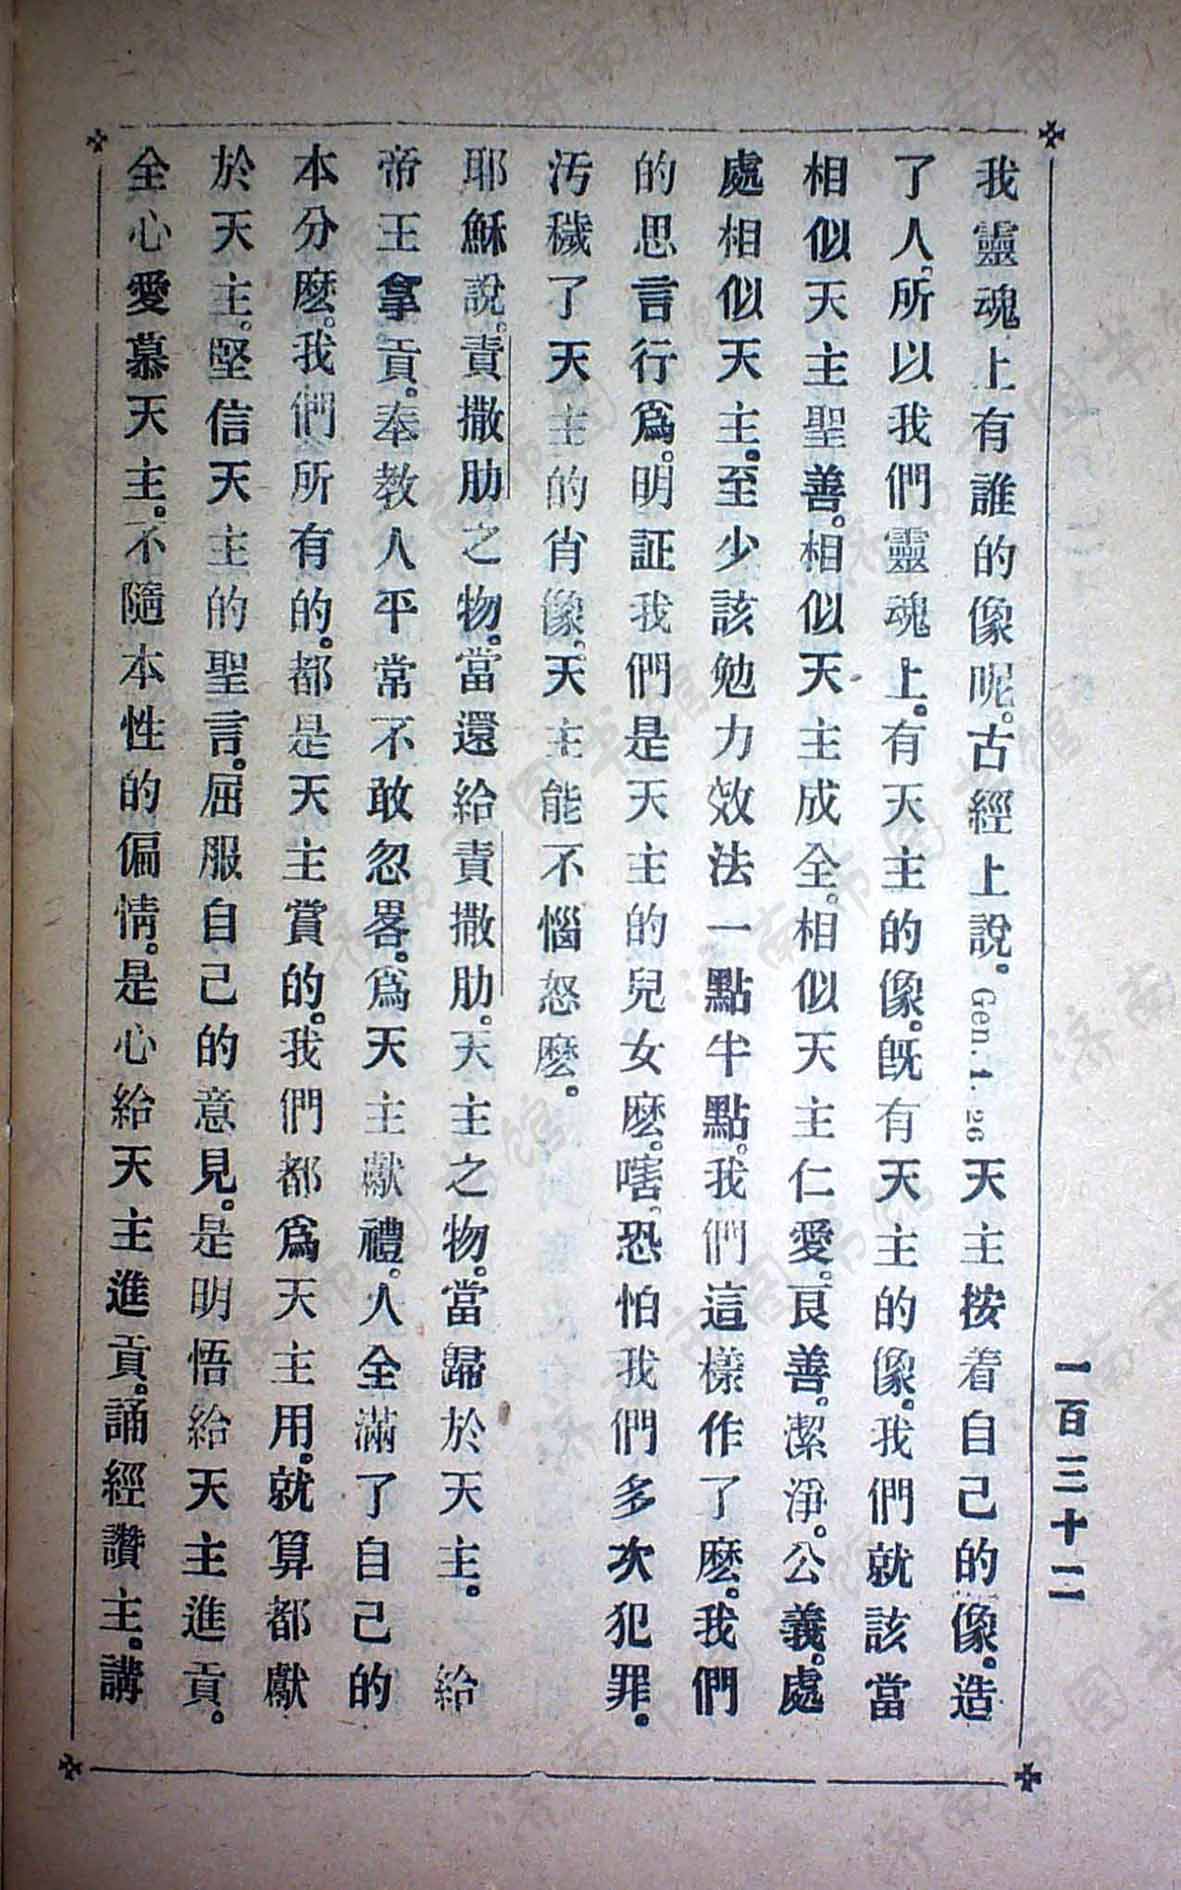 一百三十二
我靈魂上有誰的像呢。古經上說。Gen.1.26天主按着自己的像。造
了人、所以我們靈魂上。有天主的像。旣有天主的像。我們就該當
相似天主聖善。相似天主成全。相似天主仁愛。良善。潔淨。公義。處
處相似天主。至少該勉力效法一點半點。我們這樣作了麽。我們
的思言行爲。明証我們是天主的兒女麽。嘻、恐怕我們多次犯罪。
汚穢了天主的肖像。天主能不惱怒麽。
耶穌說。責撒肋之物。當還給責撒肋。天主之物。當歸於天主。　給
帝王拿貢。奉教人平常不敢忽畧。爲天主獻禮。人全滿了自己的
本分麽。我們所有的。都是天主賞的。我們都爲天主用。就算都獻
於天主。堅信天主的聖言。屈服自己的意見。是明悟給天主進貢。
全心愛慕天主。不隨本性的偏情。是心給天主進貢。誦經讚主。講